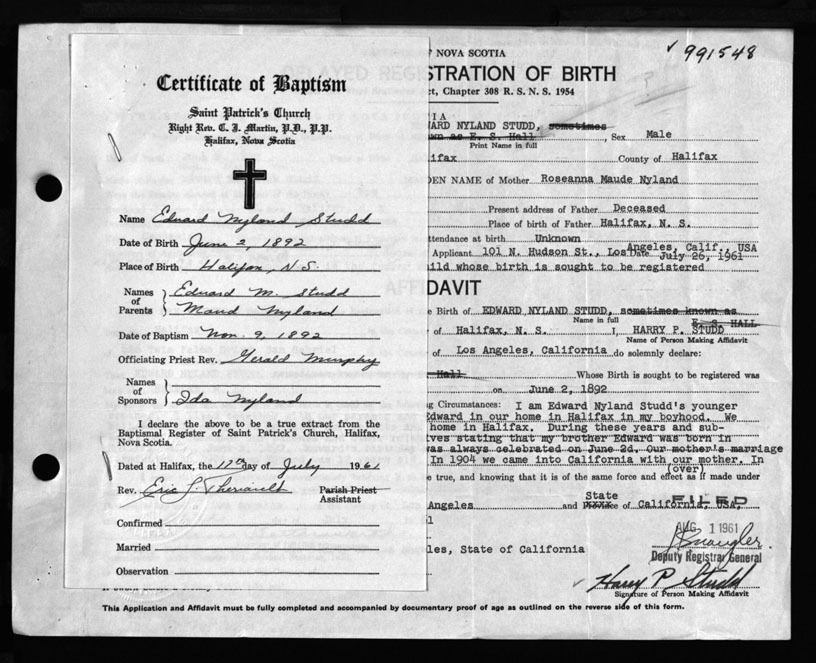 Certificate of Baptism
Saint Patrick's Church
Right Rev. C. J. Martin, P.D., P.P.
Halifax, Nova Scotia
Name Edward Nyland Studd
Date of Birth June 2, 1892
Place of Birth Halifax, N.S.
Names of Parents } Edward M. Studd
Maud Nyland
Date of Baptism Nov. 9, 1892
Officiating Priest Rev. Gerald Murphy
Names of Sponsors }
Ida Nyland
I declare the above to be a true extract from the
Baptismal Register of Saint Patrick's Church, Halifax,
Nova Scotia.
Dated at Halifax, the 17th day of July 1961
Rev. Eric J. Theriault Parish Priest
Assistant
Confirmed
Married
Observation
✓ 991548
F NOVA SCOTIA
STRATION OF BIRTH
ct, Chapter 308 R. S. N. S. 1954
?
IA
ARD NYLAND STUDD, sometimes
wn as E. S. Hall, Sex Male
Print Name in full
lifax County of Halifax
DEN NAME of Mother Roseanna Maude Nyland
Present address of Father Deceased
Place of birth of Father Halifax, N. S.
ttendance at birth Unknown
Applicant 101 N. Hudson St., Los Angeles, Calif., USA
Date July 26, 1961
ild whose birth is sought to be registered
DAVIT
e Birth of EDWARD NYLAND STUDD, sometimes known as
Name in full E. S. HALL
of Halifax, N. S. I, HARRY P. STUDD
Name of Person Making Affidavit
of Los Angeles, California do solemnly declare:
Hall Whose Birth is sought to be registered was
on June 2, 1892
g Circumstances: I am Edward Nyland Studd's younger
Edward in our home in Halifax in my boyhood. We
home in Halifax. During these years and sub-
ives stating that my brother Edward was born in
was always celebrated on June 2d. Our mother's marriage
In 1904 we came into California with our mother. In
(over)
e true, and knowing that it is of the same force and effect as if made under
Angeles and Province of California, USA,
State
FILED
61
AUG 1 1961
les, State of California
Deputy Registrar General
✓ Harry P. Studd
Signature of Person Making Affidavit
This Application and Affidavit must be fully completed and accompanied by documentary proof of age as outlined on the reverse side of this form.